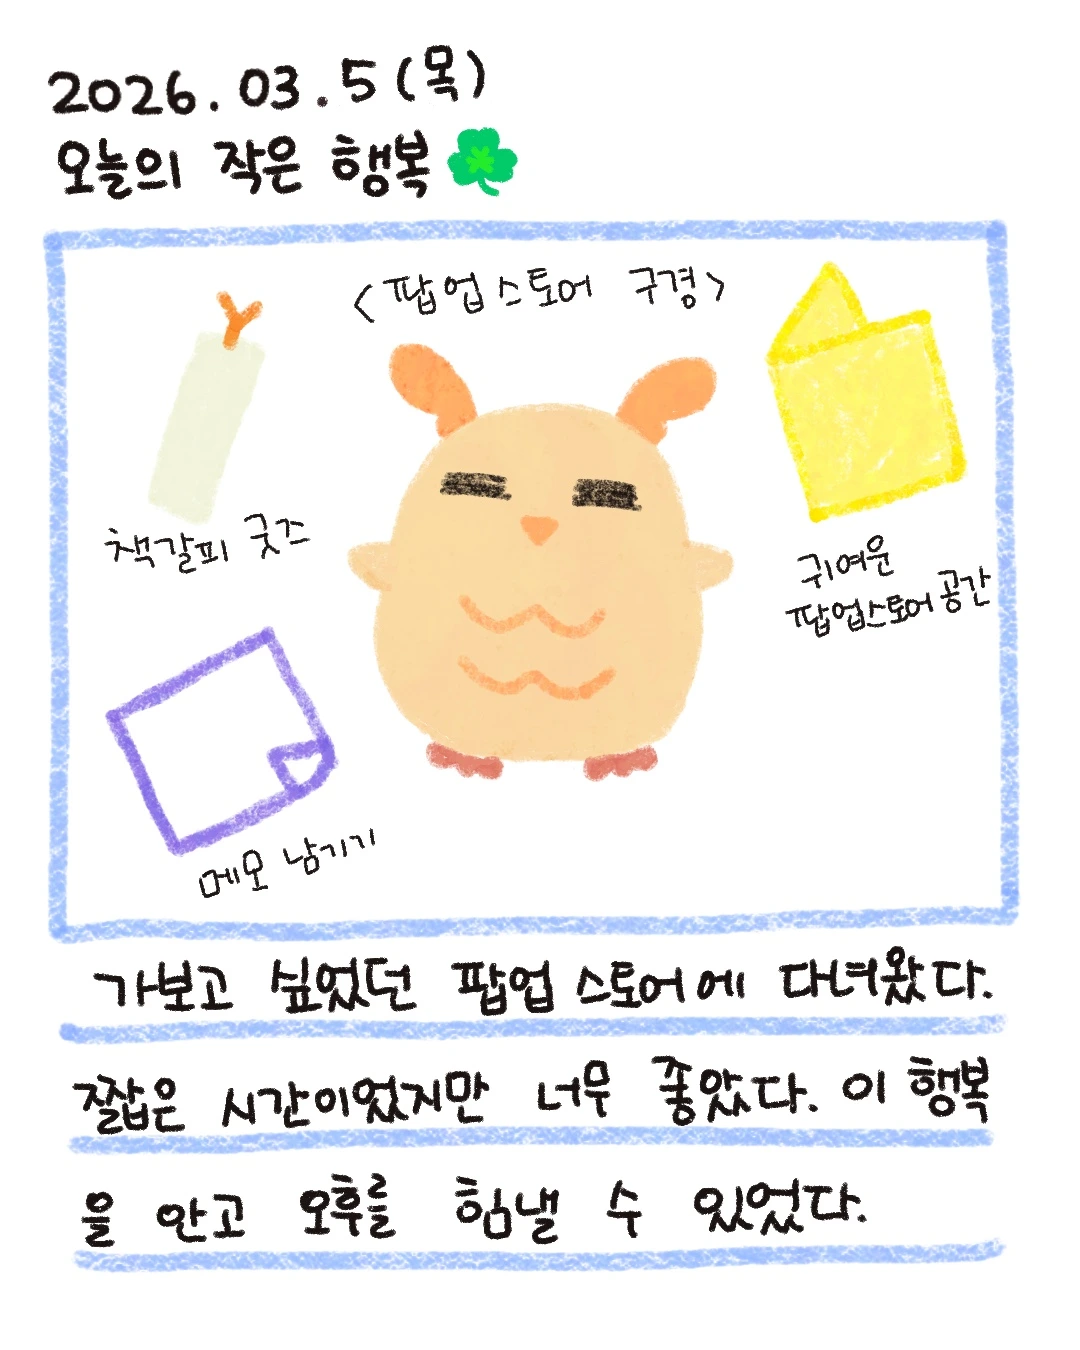 2026.03.5(목)
오늘의 작은 행복
<팝업스토어 구경>
책갈피 굿즈
귀여운
팝업스토어 공간
메모 남기기
가보고 싶었던 팝업 스토어에 다녀왔다.
짧은 시간이었지만 너무 좋았다. 이 행복
을 안고 오후를 힘낼 수 있었다.